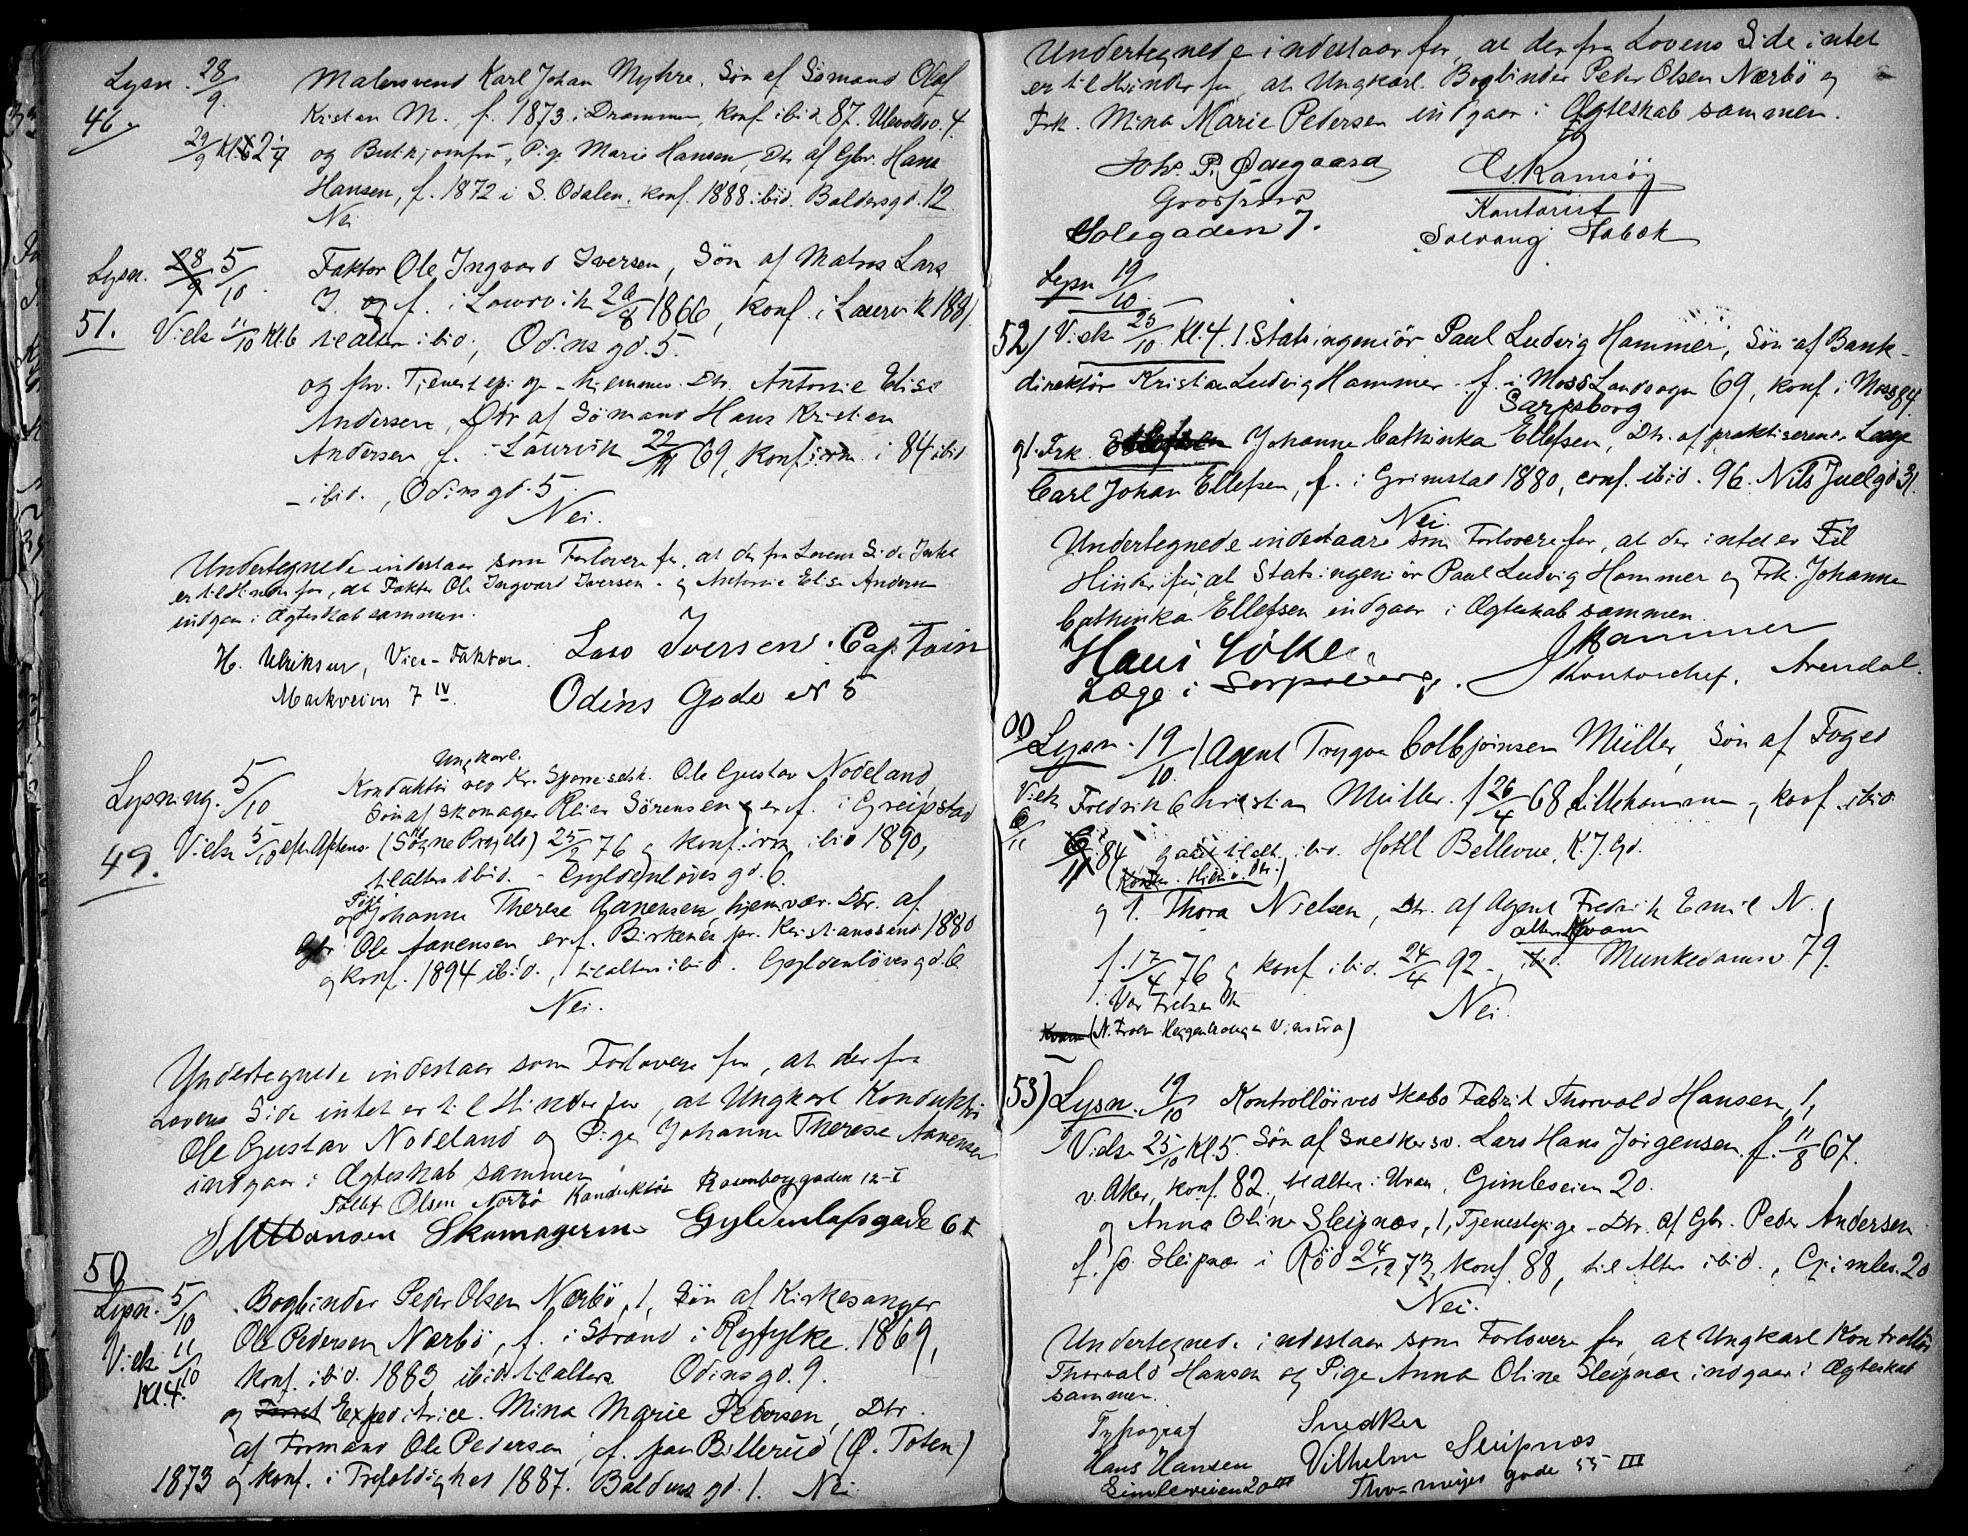 Lysn. 28/9. Malersvend Karl Johan Myhre. Søn af Sømand Olaf
46. Kristian M. f. 1873 i Drammen, konf ibid 87. Ullevoldsv. 4.
29/9 Kl. og Butikjomfru, Pige Marie Hansen, Dtr. af Gbr. Hans
Hansen, f. 1872 i S. Odalen, konf. 1888 ibid. Baldersgd. 12
Nei
Lysn. 28/9 5/10. Faktor Ole Ingvard Iversen, Søn af Matros Lars
I. og f. i Laurvik 8 1866, konf. i Laurvik 1881
51. Viels 11/10 Kl. 6 tilalters ibid, Odinsgd. 5.
og frv. Tjenestepige hjemmev. Dtr. Antonie Elise
Andersen, Dtr af Sømand Hans Kristian
Andersen f. i Laurvik 22 69, konfirm i 84 ibid
ibid., Odinsgd. 5.
Nei.
Undertegnede indestaar som Forlovere for, at der fra Lovens Side Intet
er til Hinder for, at Faktor Ole Ingvard Iversen og Antonie Elise Andersen
indgaar i Ægteskab sammen.
H. Ulriksen, Vice-Faktor. Lars Iversen. Captain
Markveien 7 IV. Odins Gade No 5
Ungkarl.
Lysning. 5/10 Konduktør ved Kr. Sporveisselsk. Ole Gustav Nodeland
Søn af Skomager Reier Sørensen er f. i Greipstad
Viels 5/10 eft. Aftens. (Søgne Prgjeld) 25/2 76 og konfirm ibid 1890,
49. tilalters ibid. - Gyldenløvesgd. 6.
Pige
og Johanne Therese Aanensen, hjemvær. Dtr. af
Gbr. Ole Aanensen er f. Birkenes pr. Kristianssand 1880
og konf. 1894 ibid., tilalters ibid. Gyldenløvesgd. 6.
Nei.
Undertegnede indestaar som Forlovere for, at der fra
Lovens Side intet er til Hinder for, at Ungkarl Konduktør
Ole Gustav Nodeland og Pige Johanne Therese Aanensen
indgaar i Ægteskab sammen.
Tollef Olsen Konduktør Rosenborggaden 12-I
Hansen Skomagerm. Gyldenløfsgade 6 I
50
Lysn. 5/10 Bogbinder Peder Olsen Nærbø, 1, Søn af Kirkesanger
Ole Pedersen Nærbø, f. i Strand i Ryfylke 1869,
Viels 11/10 konf. ibid. 1883 ibid tilalters Odinsgd. 9.
Kl. 4. og Expeditrice. Mina Marie Pedersen, Dtr.
af Formand Ole Pedersen, f. paa Billerud (Ø. Toten)
1873 og konf. i Trefoldighed 1887. Baldersgd. 1. Nei
Undertegnede indestaar for, at der fra Lovens Side intet
er til Hinder for, at Ungkarl. Bogbinder Peder Olsen Nærbø og
Frk. Mina Marie Pedersen indgaar i Ægteskab sammen.
Johs. P. Ødegaard
Solegaden 7. Kontorist
Solvang Stabæk
Lysn 19/10.
52) Viels 25/10 Kl. 4. 1. Statsingeniør Paul Ludvig Hammer, Søn af Bank-
direktør Kristian Ludvig Hammer f. i Moss Landsogn 69, konf. i Moss 84.
Sarpsborg
og 1. Frk. Johanne Cathinka Ellefsen, Dtr. af praktiserende Læge
Carl Johan Ellefsen, f. i Grimstad 1880, conf. ibid. 96. Nils Juelgd 31.
Nei.
Undertegnede indestaar som Forlovere for, at der intet er Til
Hinder for, at Statsingeniør Paul Ludvig Hammer og Frk. Johanne
Cathinka Ellefsen indgaar i Ægteskab sammen.
Hans Hammer
Læge i Sarpsborg. Kontorchef, Arendal.
Lysn. 19/10. 1 Agent Trygve Colbjørnsen Müller, Søn af Foged
Viels 6/11 Fredrik Christian Müller. f 26/4 68 Lillehammer og konf. ibid
84 tilalt. ibid. Hotel Bellevue, K. J. Gd.
og 1. Thora Nielsen, Dtr. af Agent Fredrik Emil N.
alters Kvam
f. 12/4 76 og konf ibid. 24/4 92 ibid. Munkedamsv. 79.
i Vor Frelsers Nei.
Kvam (N. Fron Heggenhougen Vinstra)
53) Lysn. 19/10 Kontrollør ved Skabo Fabrik Thorvald Hansen, 1,
Viels 25/10 Kl. 5. Søn af Snedkersv. Lars Hans Jørgensen. f. 11/8 67.
v. Aker, konf. 82., tilalters i Uran, Gimleveien 20.
og Anna Oline Sleipnæs, 1, Tjenestepige - Dtr. af Gbr. Peder Andersen
f. p. Sleipnæs i Rød 24/12 73, konf. 88, til Alters ibid., Gimlev. 20
Nei.
Undertegnede indestaar som Forlovere for, at Ungkarl Kontrollør
Thorvald Hansen og Pige Anna Oline Sleipnæs indgaar i Ægteskab
sammen.
Typograf Snedker
Hans Hansen Vilhelm Sleipnæs
Gimleveien 20 III Thor Meyers gade 55 III